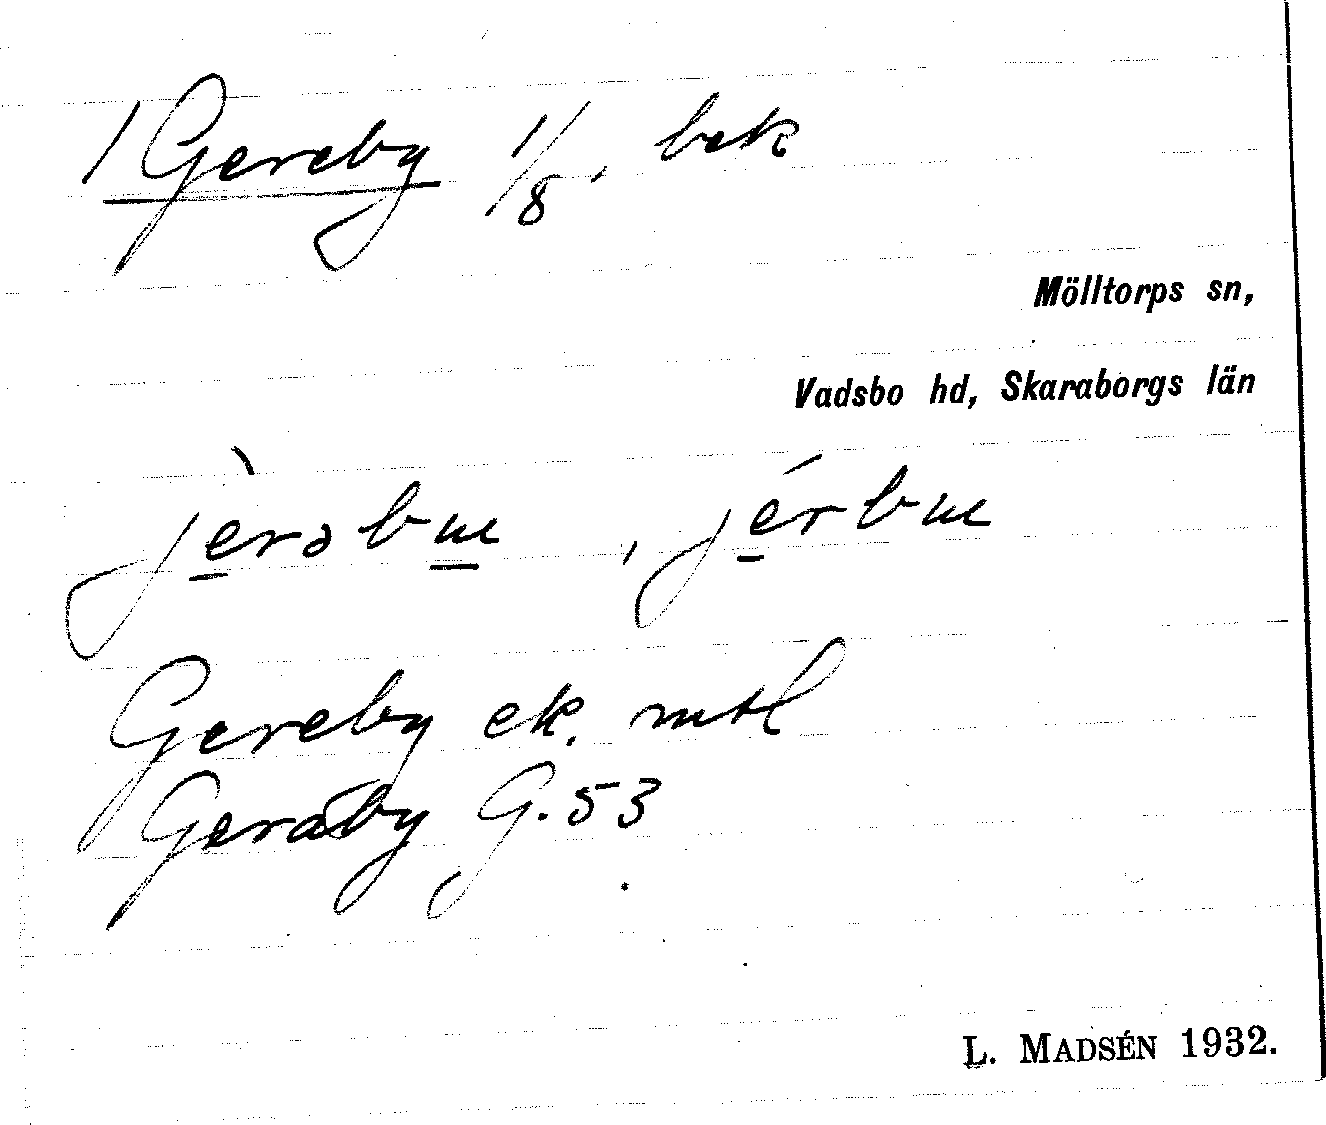 / Gereby 1/8, bek
Mölltorps sn,
Vadsbo hd, Skaraborgs län
jèrəbɯ, jérbɯ
Gereby ek. mtl
Geraby G. 53
L. MADSÉN 1932.